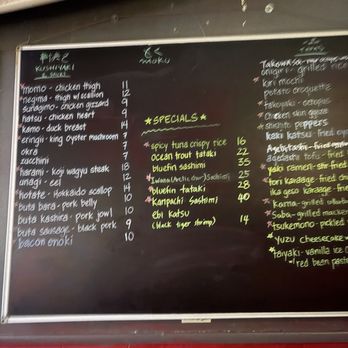 KUSHIYAKI
& SKILL
momo - chicken thigh 11
negima - thigh w/ scallion 12
sunagimo - chicken gizzard 9
hatsu - chicken heart 9
kamo - duck breast 14
eringii - king oyster mushroom 7
okra 7
zucchini 7
harami - koji wagyu steak 18
unagi - eel 12
hotate - Hokkaido scallop 14
buta bara - pork belly 10
buta kashira - pork jowl 10
buta sausage - black pork 9
bacon enoki 10
MORU
★SPECIALS★
spicy tuna crispy rice 16
ocean trout tataki 22
bluefin sashimi 35
Iwana (Arctic char) Sashimi 25
bluefin tataki 28
Kanpachi Sashimi 40
ebi katsu
(black tiger shrimp) 14
onigiri - grilled rice
kiri mochi
potato croquette
takoyaki - octopus
chicken skin gyoza
shishito peppers
kaki katsu - fried oys
agedashi tofu - fried
yaki ramen - stir fried
tori karaage - fried
ika geso karaage - fried
Kama - grilled
Saba - grilled mackerel
tsukemono - pickled
YUZU cheesecake
taiyaki - vanilla ice
w/ red bean paste